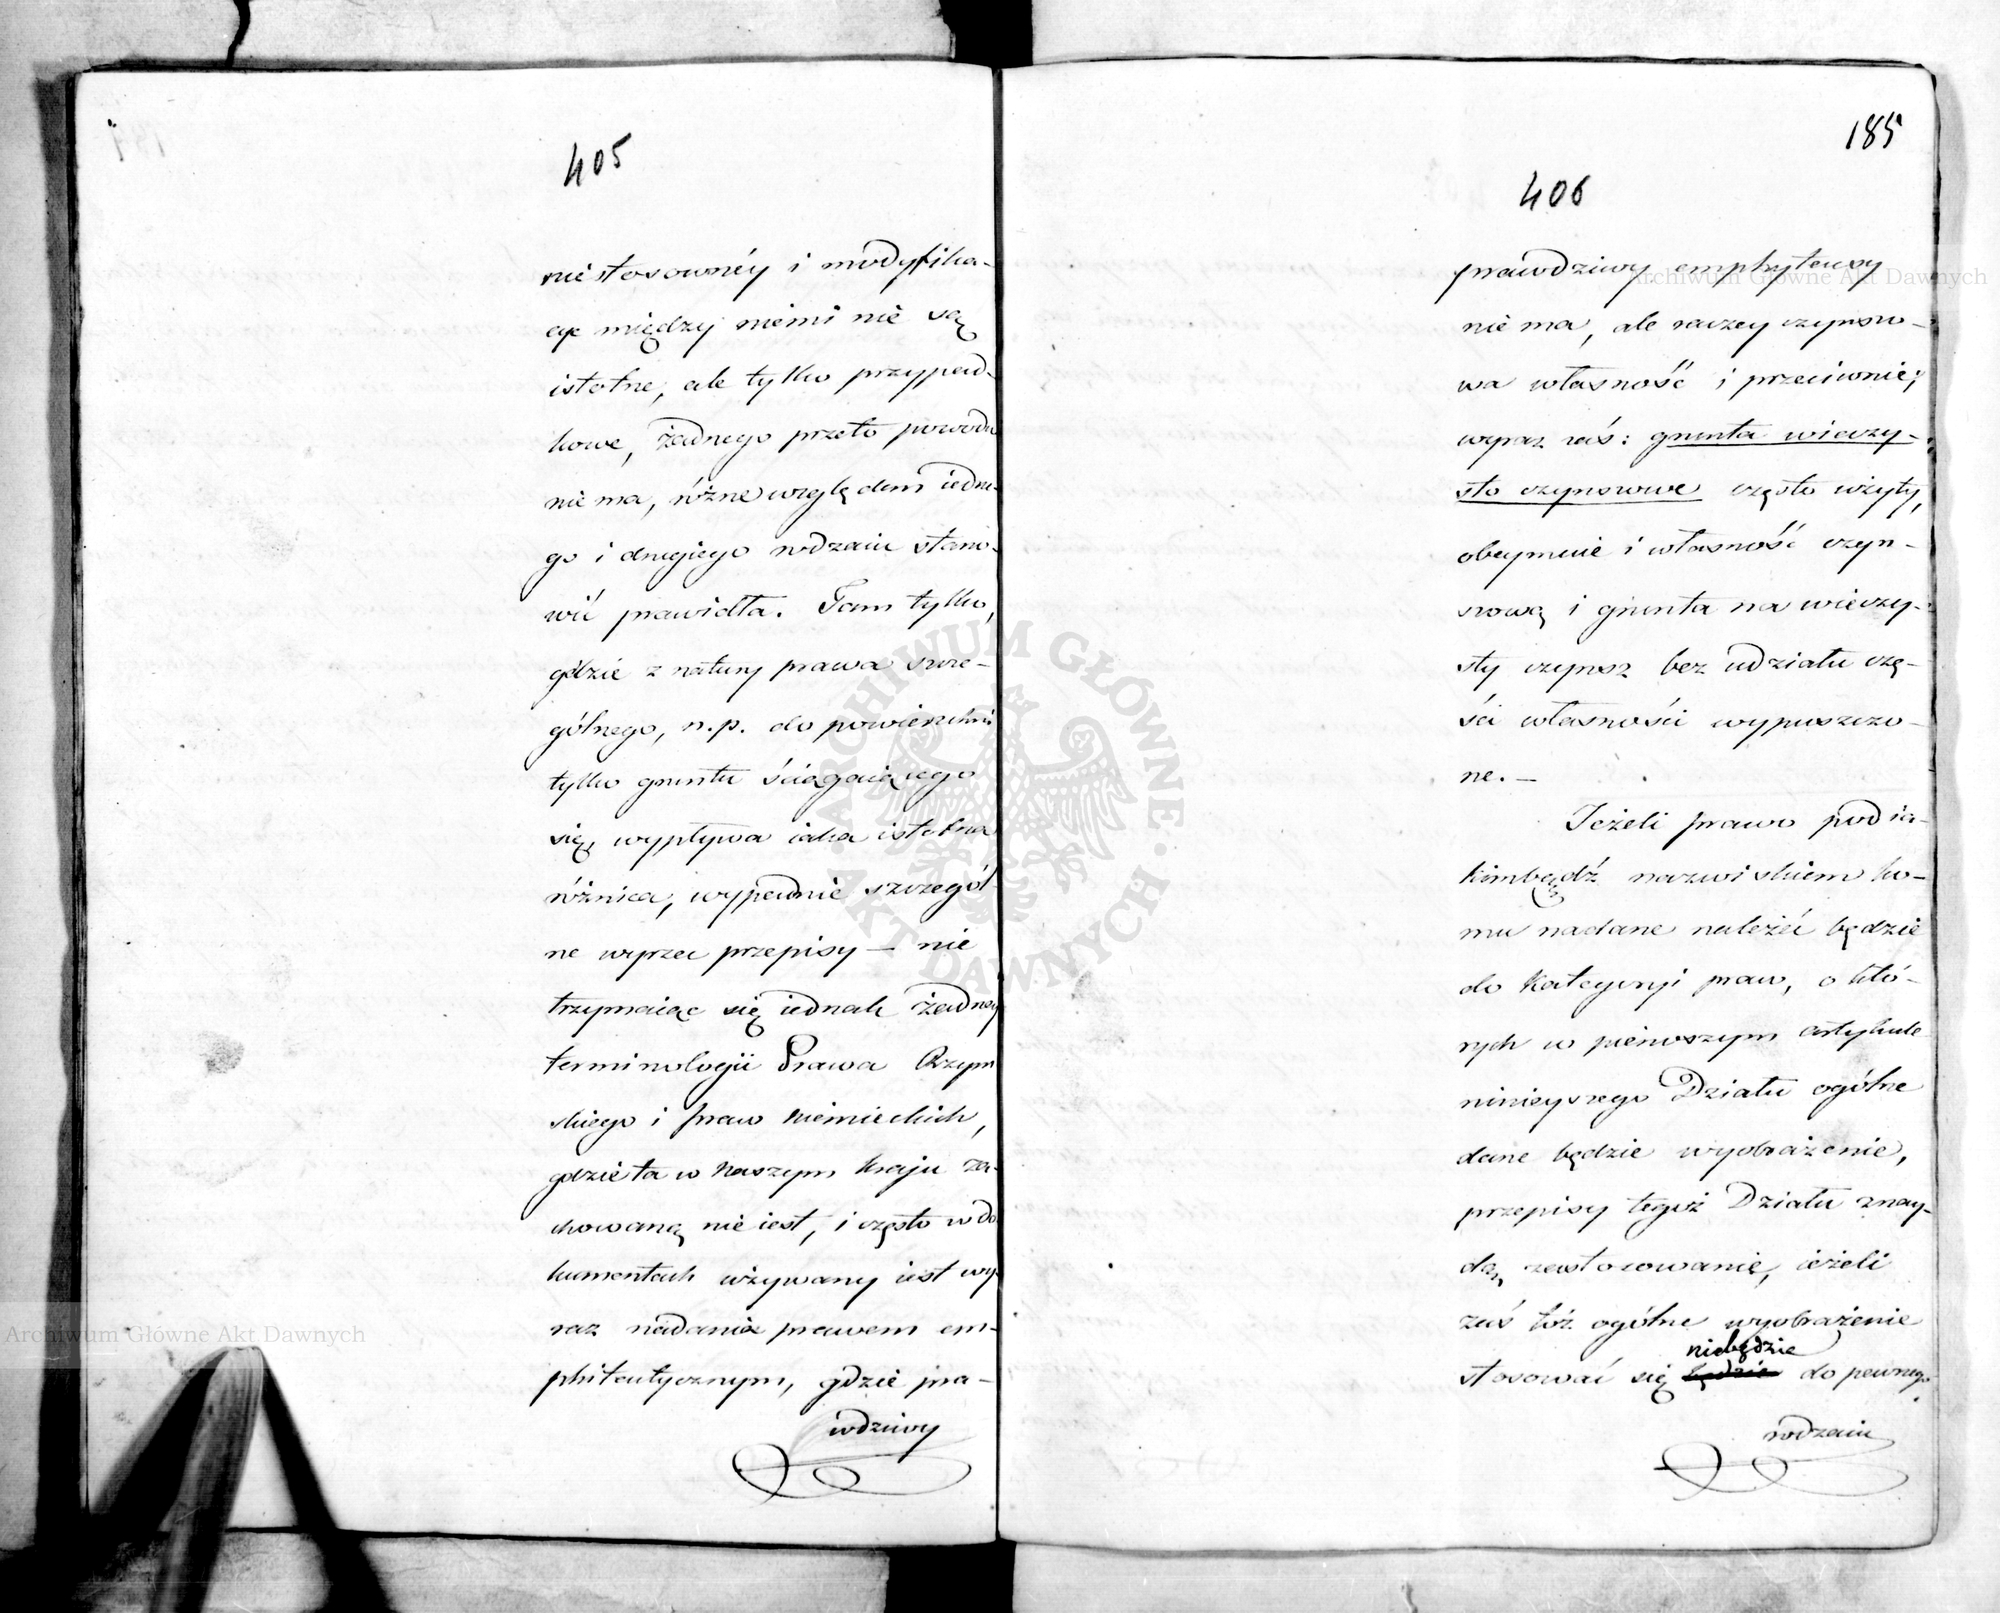 405
niestosownéy i modyfika-
cye między niemi nie są
istotne, ale tylko przypad-
kowe, żadnego przeto powodu
nie ma, różne względem iedne-
go i drugiego rodzaiu stano-
wić prawidła. Tam tylko,
gdzie z natury prawa szcze-
gólnego, n.p. do powierzchni
tylko gruntu ściągaiącego
się, wypływa iaka istotna
różnica, wypadnie szczegól-
ne wyrzec przepisy — nie
trzymaiąc się iednak żadney
terminologii Prawa Rzym
skiego i praw niemieckich,
gdzie ta w naszym kraju za-
chowaną nie iest, i często w do
kumentach używany iest wy-
raz nadania prawem em-
phiteutycznym, gdzie pra-
wdziwy
185
406
prawdziwy emphyteusy
nie ma, ale raczey czynszo-
wa własność i przeciwnie;
wyraz zaś: grunta wieczy-
sto czynszowe często użyty,
obeymuie i własność czyn-
szową i grunta na wieczy-
sty czynsz bez udziału czę-
ści własności wypuszczo-
ne. —
Jeżeli prawo pod ia-
kimbądź nazwiskiem ko-
mu nadane należéć będzie
do kategoryi praw, o któ-
rych w pierwszym artykule
ninieyszego Działu ogólne
dane będzie wyobrażenie,
przepisy tegoż Działu znay-
dą zastosowanie, ieżeli
zaś tóż ogólne wyobrażenie
niebędzie
stosować się będzie do pewnego
rodzaiu
Archiwum Główne Akt Dawnych
Archiwum Główne Akt Dawnych
ARCHIWUM GŁÓWNE AKT DAWNYCH